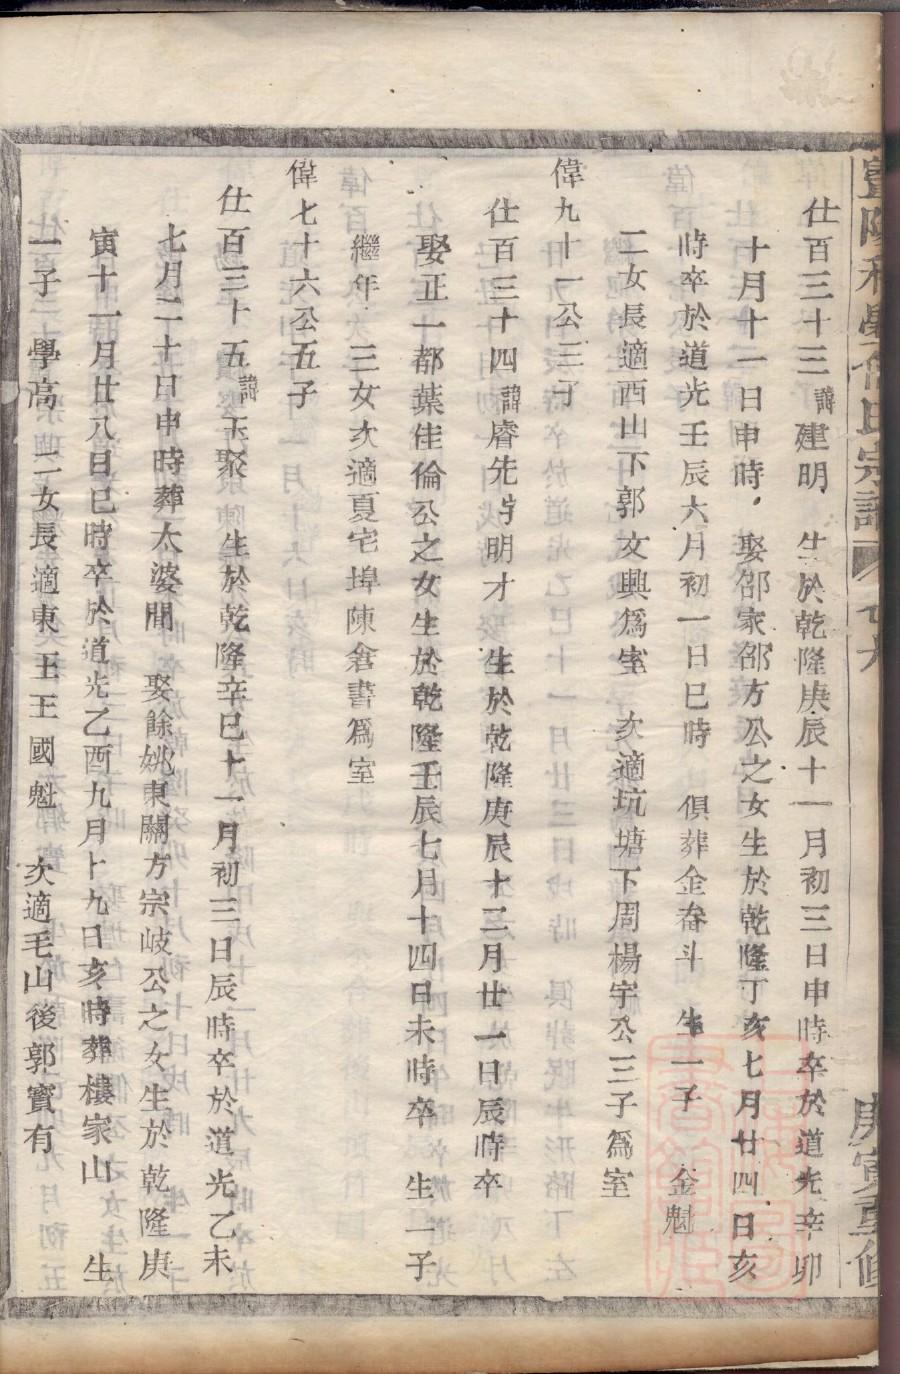 仕百三十三諱建明 生於乾隆庚辰十一月初三日申時卒於道光辛卯
十月十一日申時 娶邵家邵方公之女生於乾隆丁亥七月廿四日亥
時卒於道光壬辰六月初一日巳時 俱葬金畚斗 生一子 金魁
二女長適西山下郭文興爲室 次適坑塘下周楊宇公三子爲室
偉九十一公三子
仕百三十四諱睿先字明才 生於乾隆庚辰十三月廿一日辰時卒
娶正一都葉佳倫公之女生於乾隆壬辰七月十四日未時卒 生一子
繼年 三女次適夏宅埠陳倉書爲室
偉七十六公五子
仕百三十五諱玉聚 生於乾隆辛巳十一月初三日辰時卒於道光乙未
七月二十日申時葬太婆閒 娶餘姚東關方宗岐公之女生於乾隆庚
寅十一月廿八日巳時卒於道光乙酉九月十九日亥時葬樓家山 生
一子學高 二女長適東王王國魁 次適毛山後郭寳有